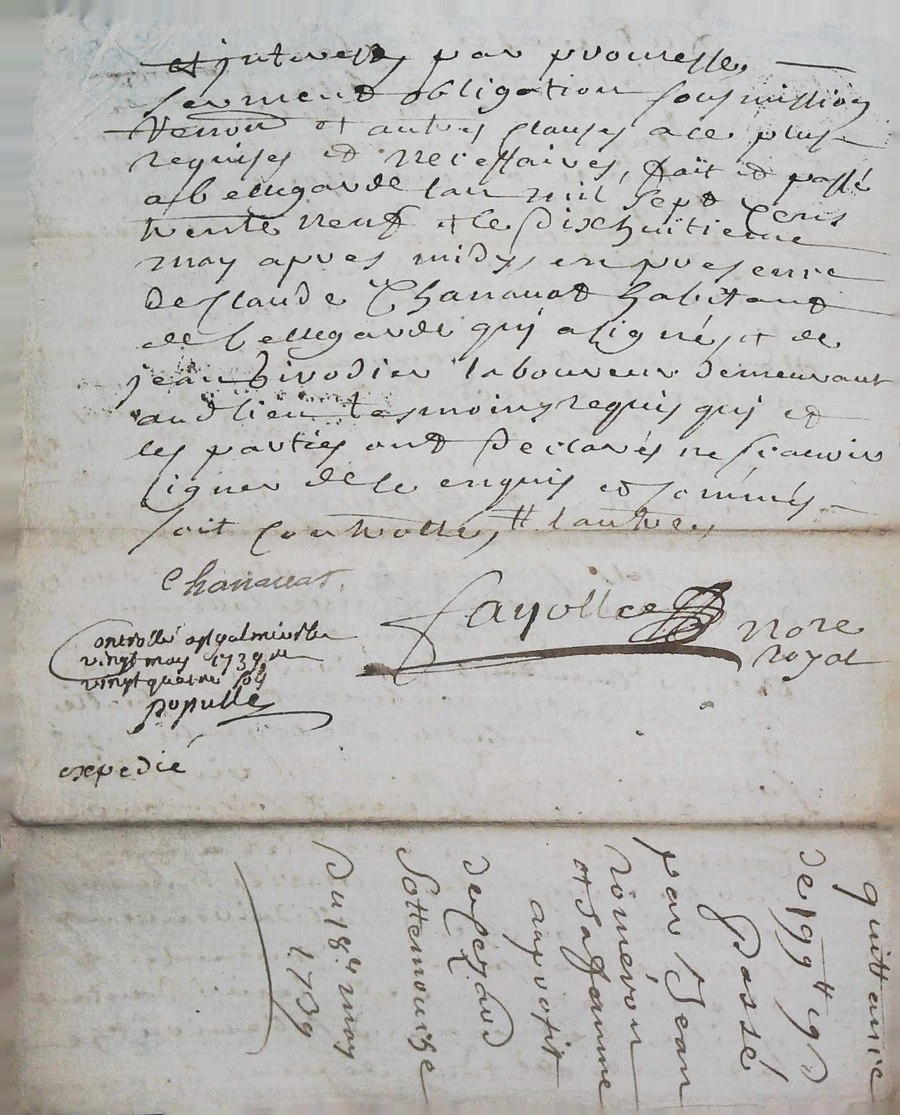 et interests par promesse,
serment obligation soubmission
renon et autres clauses a ce plus
requises et necessaires, fait et passé
a bellegarde l'an mil sept cens
trente neuf et le dixhuitieme
may apres midy en presence
de Claude Chanauat habitant
de bellegarde qui a signé, et de
jean Girodier laboureur demeurant
aud lieu tesmoins requis qui et
les parties ont declarés ne scauoir
signer de ce enquis et sommés
soit controllé, # l'autre,
Chanauat.
Fayolle
no.re
royal
Controllé a St galmier le
vingt may 1739 re
vingt quatre sols
populle
expedié
quittance
de 199 " 19 d
passé
par Jean
rimevon
et sa femme
au profit
de
Sottemouche
Du 18e may
1739